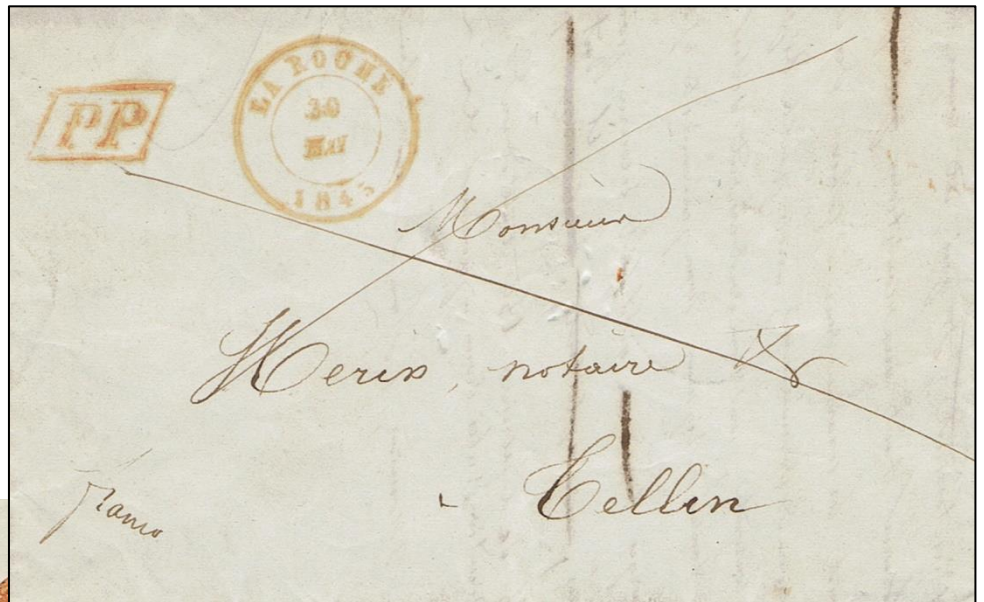 PP
LA ROCHE
30
MAI
Monsieur
notaire &
à Tellin
franco